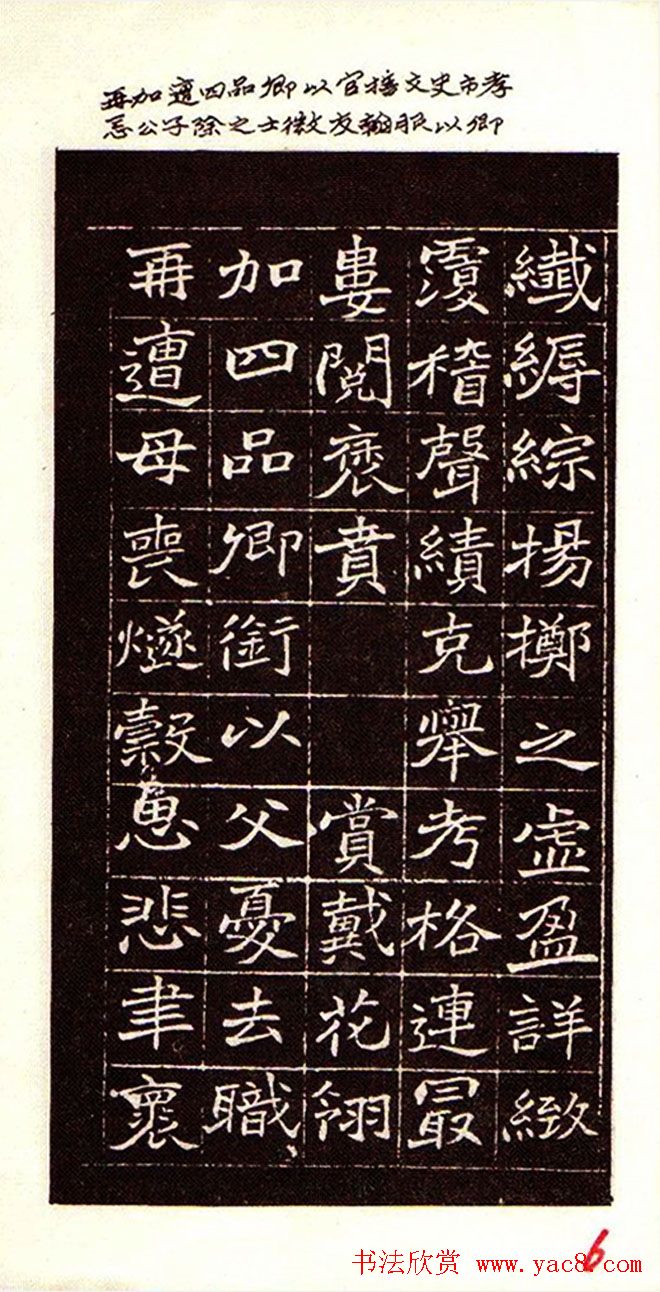 再加遭四品卿以官接文史市孝
公子除之士微文友以卿
纖縟綜揚擲之虛盈詳緻
覆稽聲績克舉考格連最
婁閱褒賁賞戴花翎
加四品卿銜以父憂去職
再遭母喪燧穀悲聿褱
6
书法欣赏 www.yac8.com